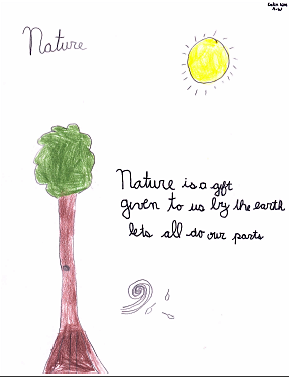 Nature
Nature is a gift
given to us by the earth
lets all do our parts